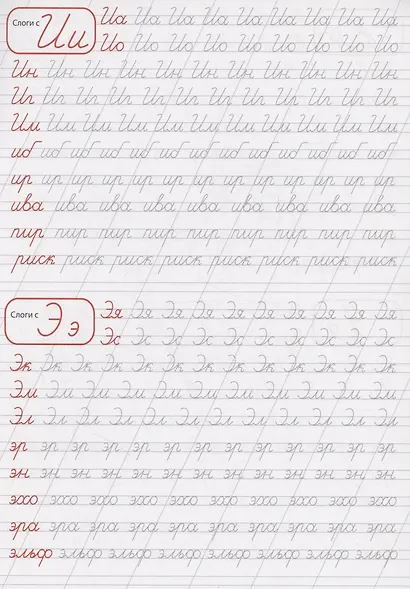 Слоги с Ии
Иа Иа Иа Иа Иа Иа Иа Иа Иа
Ио Ио Ио Ио Ио Ио Ио Ио Ио
Ин Ин Ин Ин Ин Ин Ин Ин Ин Ин Ин
Иг Иг Иг Иг Иг Иг Иг Иг Иг Иг Иг Иг
Им Им Им Им Им Им Им Им Им Им Им
иб иб иб иб иб иб иб иб иб иб иб иб иб
ир ир ир ир ир ир ир ир ир ир ир ир ир
ива ива ива ива ива ива ива ива ива
пир пир пир пир пир пир пир пир пир
риск риск риск риск риск риск риск риск
Слоги с Ээ
Эя Эя Эя Эя Эя Эя Эя Эя Эя Эя
Эс Эс Эс Эс Эс Эс Эс Эс Эс Эс
Эк Эк Эк Эк Эк Эк Эк Эк Эк Эк Эк Эк
Эм Эм Эм Эм Эм Эм Эм Эм Эм Эм Эм
Эл Эл Эл Эл Эл Эл Эл Эл Эл Эл Эл Эл
эр эр эр эр эр эр эр эр эр эр эр эр эр
эн эн эн эн эн эн эн эн эн эн эн эн эн
эхо эхо эхо эхо эхо эхо эхо эхо эхо эхо
эра эра эра эра эра эра эра эра эра эра
эльф эльф эльф эльф эльф эльф эльф эльф